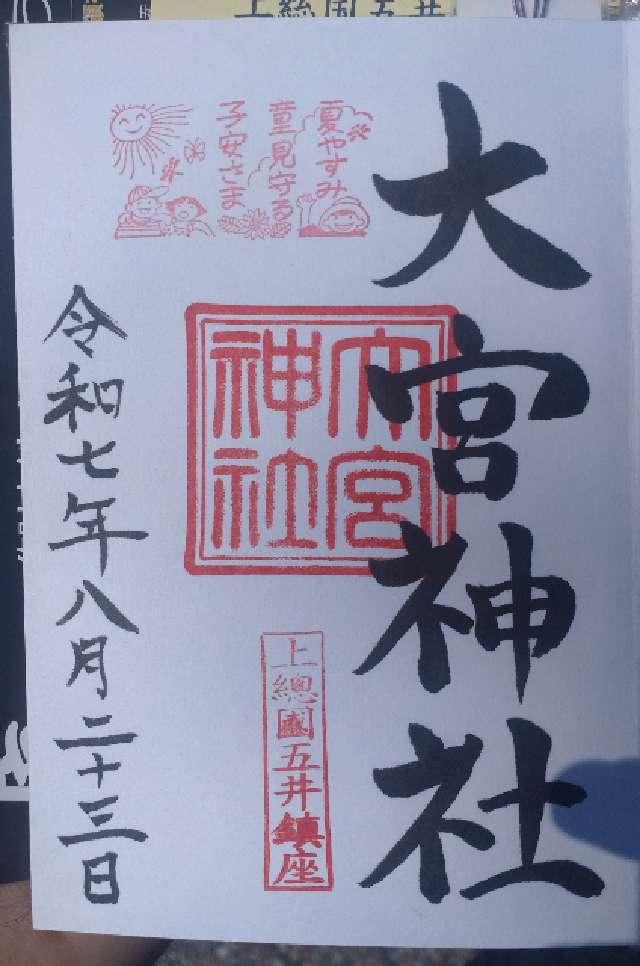 大宮神社
夏やすみ
童見守る
子安さま
大宮
神社
上總國五井鎮座
令和七年八月二十三日
上総国五井